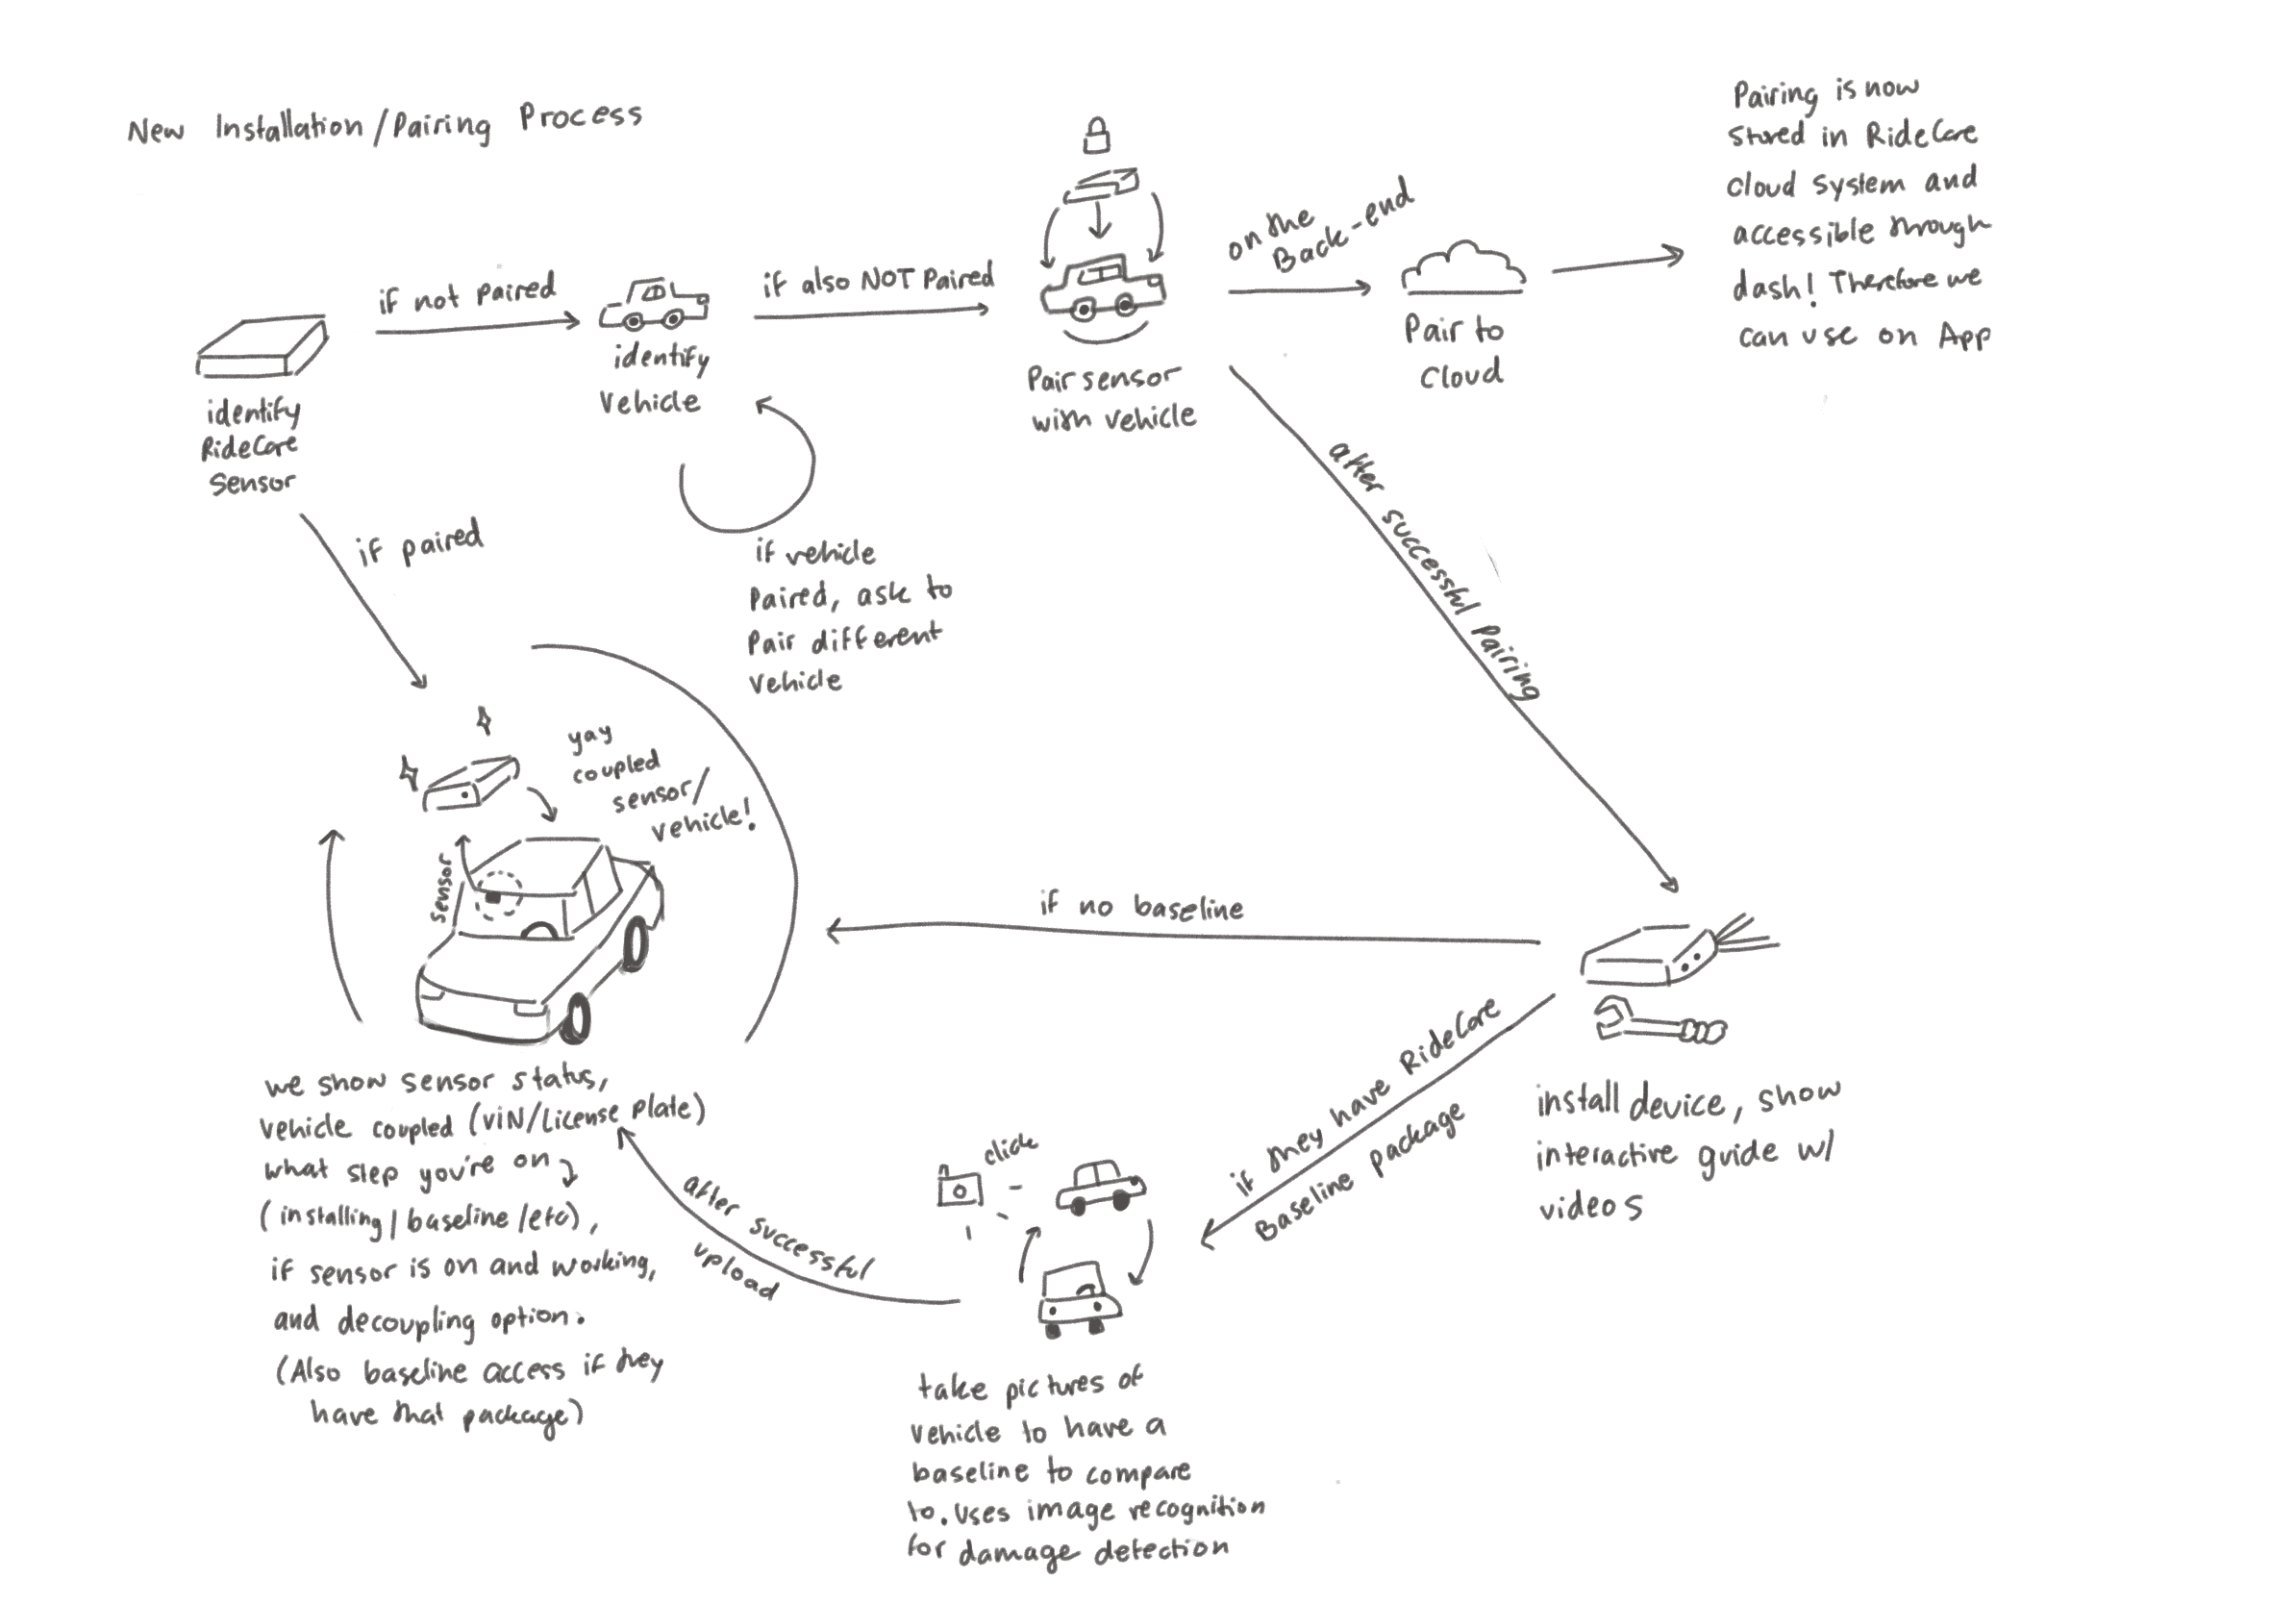 New Installation/Pairing Process
identify
RideCare
Sensor
if not paired
identify
Vehicle
if also NOT Paired
Pair sensor
with vehicle
on the
Back-end
Pair to
Cloud
Pairing is now
stored in RideCare
cloud system and
accessible through
dash! Therefore we
can use on App
if vehicle
Paired, ask to
Pair different
Vehicle
if paired
yay
coupled
sensor/
vehicle!
sensor
after successful Pairing
install device, show
interactive guide w/
videos
if no baseline
if they have RideCare
Baseline Package
click
take pictures of
vehicle to have a
baseline to compare
to. uses image recognition
for damage detection
after successful
upload
we show sensor status,
vehicle coupled (VIN/License plate)
what step you're on
(installing/baseline/etc),
if sensor is on and working,
and decoupling option.
(Also baseline access if they
have that package)